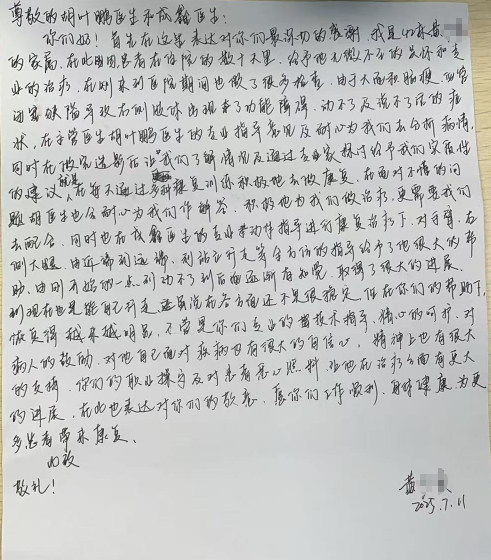 尊敬的胡叶鹏医生和成鑫医生：
你们好！首先在这里表达对你们最深切的感谢，我是42床黄
的家属，在此期间患者在住院的数十天里，给予他无微不至的关怀和专
业的治疗，在刚来到医院期间也做了很多检查，由于大面积脑梗，血管
闭塞缺陷导致右侧肢体出现者了功能障碍，动不了及说不了话的症
状，在主管医生胡叶鹏医生的专业指导意见及耐心为我们去分析病情，
同时在做完造影后让我们了解情况及通过专家探讨给予我们实质性
的建议，就是在每不通过多种康复训练积极地去做康复，在面对不懂的问
题胡医生也会耐心为我们作解答，积极地为我们做治疗，更需要我们
去配合，同时也在成鑫医生的专业带动作指导进行康复治疗下，对手臂，右
侧大腿，由近端到远端，到站立行走等全方位的指导给予了他很大的帮
助，由刚开始的一点到动不了到后面逐渐有知觉，取得了很大的进展，
到现在也是能自己行走，虽虽说在各方面还不是很稳定，但在你们的帮助下，
恢复得越来越明显，不管是你们专业的督技术指导，精心的可疗，对
病人的鼓励，对他自己面对疾病也有很大的自信心，精神上也有很大
的支持，你们的职业操守及对患者悉心照料，让他在治疗方面有更大
的进展，在此也表达对你们的敬意，愿你们工作顺利，身体健康，为更
多患者带来康复。
此致
敬礼！
黄
2025.7.11